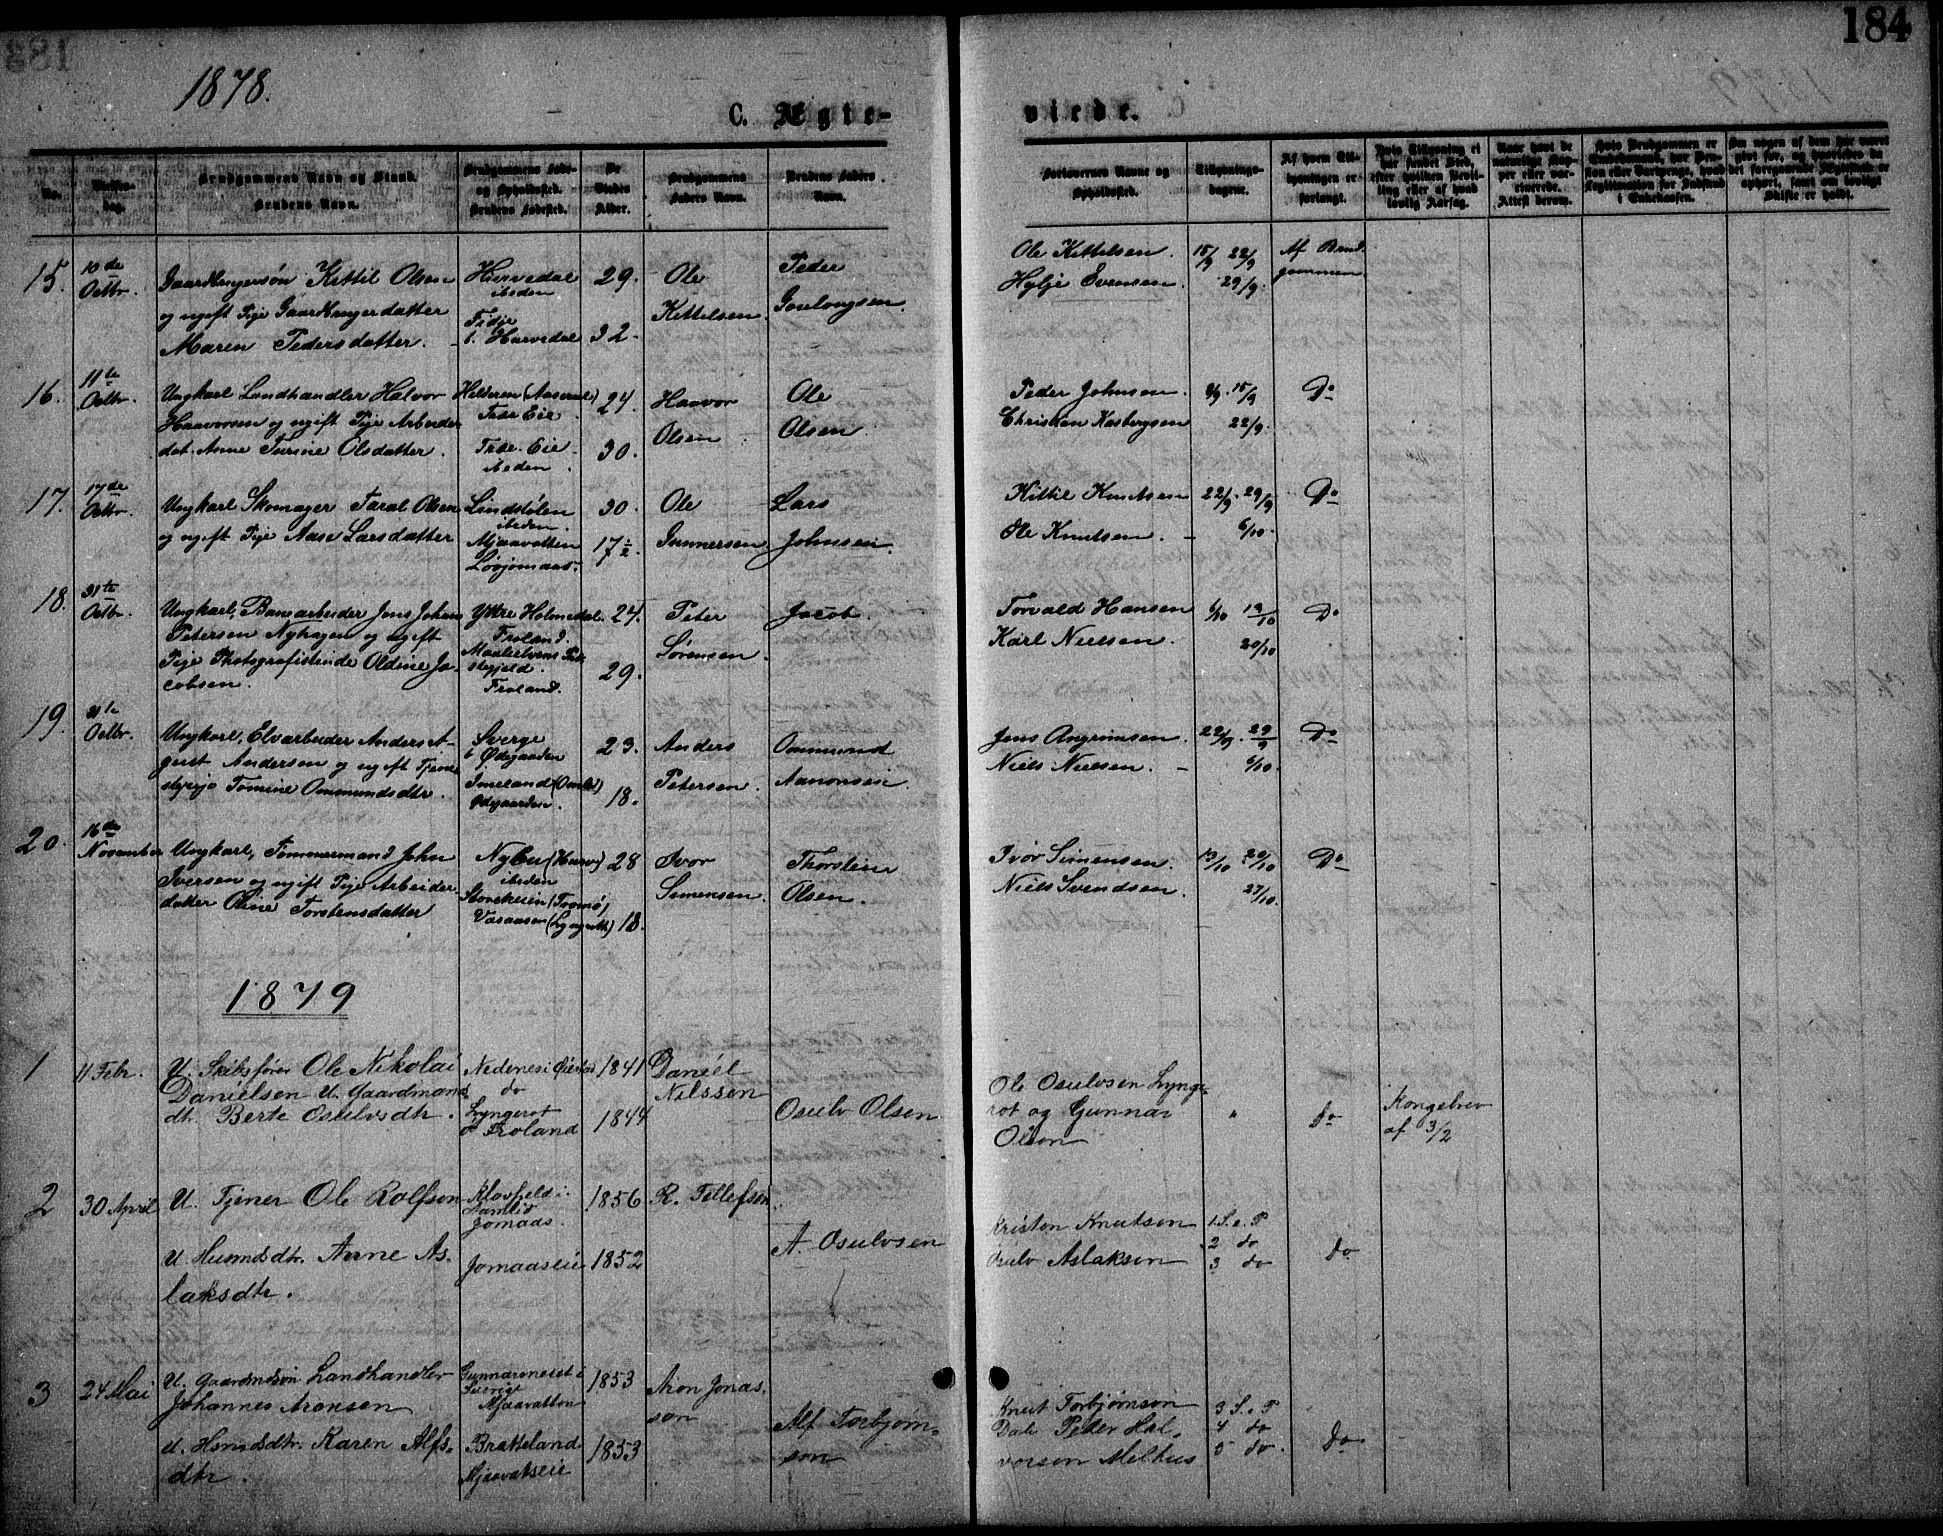 184
1878.
C. Ægte-
viede.
No.
Brudgommens Navn og Stand.
Brudens Navn.
Brudgommens Føde-
og Opholdssted.
Brudens Fødested.
De
Viedes
Alder.
Brudgommens
Faders Navn.
Brudens Faders
Navn.
Forlovernes Navne og
Opholdssted.
Tillysnings-
dagene.
Af hvem Til-
lysningen er
forlangt.
15.
10de
Octbr.
Gaardbrugersøn Kittil Olsen
og ugift Pige Gaardbrugerdatter
Maren Pedersdatter.
Hurvedal
ibeden
t. Hurvedal
29.
32.
Ole
Kittelsen.
Peder
Ole Kittelsen.
Hylje Evensen.
15/9 22/9
29/9.
Af Brud
gommen
16.
11te
Octbr.
Ungkarl Landhandler Halvor
Haavorsen og ugift Pige Arbeider
dat. Anne Turine Olsdatter.
Træe Eie
Trae. Eie
ibeden
24.
30.
Haavor
Olsen
Ole
Olsen.
Peder Johnsen.
Christian Kasbergsen
8/9. 15/9
22/9.
Do
17.
17de
Octbr.
Ungkarl Skomager Taral Olsen
og ugift Pige Aase Larsdatter
Lindstølen
ibeden.
Mjaavatten
30.
17 1/2.
Ole
Gunnersen
Lars
Johnsen.
Kittil Knutsen
Ole Knutsen.
22/9. 29/9
6/10.
Do
18.
31te
Octbr.
Ungkarl, Banearbeider Jens Johan
Petersen Nyhagen og ugift
Pige Photografistinde Oldine Ja-
cobsen.
Ytre Holmedal
Froland.
Maalselvens Præ
stegjeld.
Froland.
24.
29.
Peter
Sørensen.
Jacob.
Torvald Hansen
Karl Nielsen.
6/10 13/10
20/10
Do
19.
31te
Octbr.
Ungkarl, Elvarbeider Anders A-
gust Andersen og ugift Tjene
stepige Tomine Ommundsdtr.
Sverge
Ødegaarden
Imeland (Omlid)
Ødegaarden.
23.
18.
Anders
Petersen.
Ommund
Aanonsen.
Jens Angrimsen.
Niels Nielsen.
22/9. 29/9
6/10.
Do
20.
16de
November
Ungkarl, Tømmermand John
Iversen og ugift Pige Arbeider
datter Oline Torstensdatter
Nybu (Hurv)
ibeden
(Tromø)
Vasaasen (Lyngroth)
28
18.
Ivor
Simensen.
Thorstein
Olsen.
Ivor Simensen.
Niels Svendsen.
13/10 20/10
27/10.
Do
1879
1
11 Febr.
U. Skibsfører Ole Nikolai
Danielsen U. Gaardmands
dt. Berte Osulvsdtr.
Nedenes i Øiestad
do
Lyngerot
Froland
1841
1844
Daniel
Nilssen
Osulv Olsen
Ole Osulvsen Lynge
rot og Gunnar
Olsen
"
Do
Kongebrev
af 3/2
2
30 April
U. Tjener Ole Rolfson
U. Husmdsdtr. Anne As-
laksdtr.
Klovfjeld i
Aamlid
Jomaas.
Jomaaseie
1856
1852
R. Tellefson
A. Osulvsen
Kristen Knutsen
Osulv Aslaksen
1 S. e. P
2 do
3 do
do
3
24 Mai
U. Gaardmdsøn Landhandler
Johannes Aronsen
U. Hsmdsdtr. Karen Alfs-
dtr.
Sverige
Mjaavatten
Bratteland
Mjaavatseie
1853
1853
Aron Jonas-
son
Alf Torbjørn-
son
Knut Torbjørnson
Dale Peder Hal-
vorsen Melhus
3 S. e. P
4 do
5 do.
Do